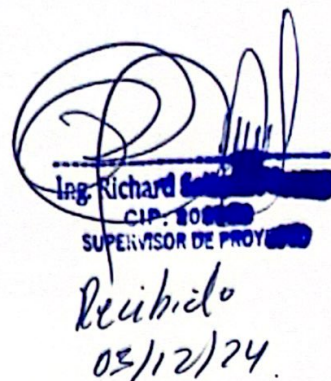 Ing. Richard
CIP:
SUPERVISOR DE
Recibido
03/12/24.